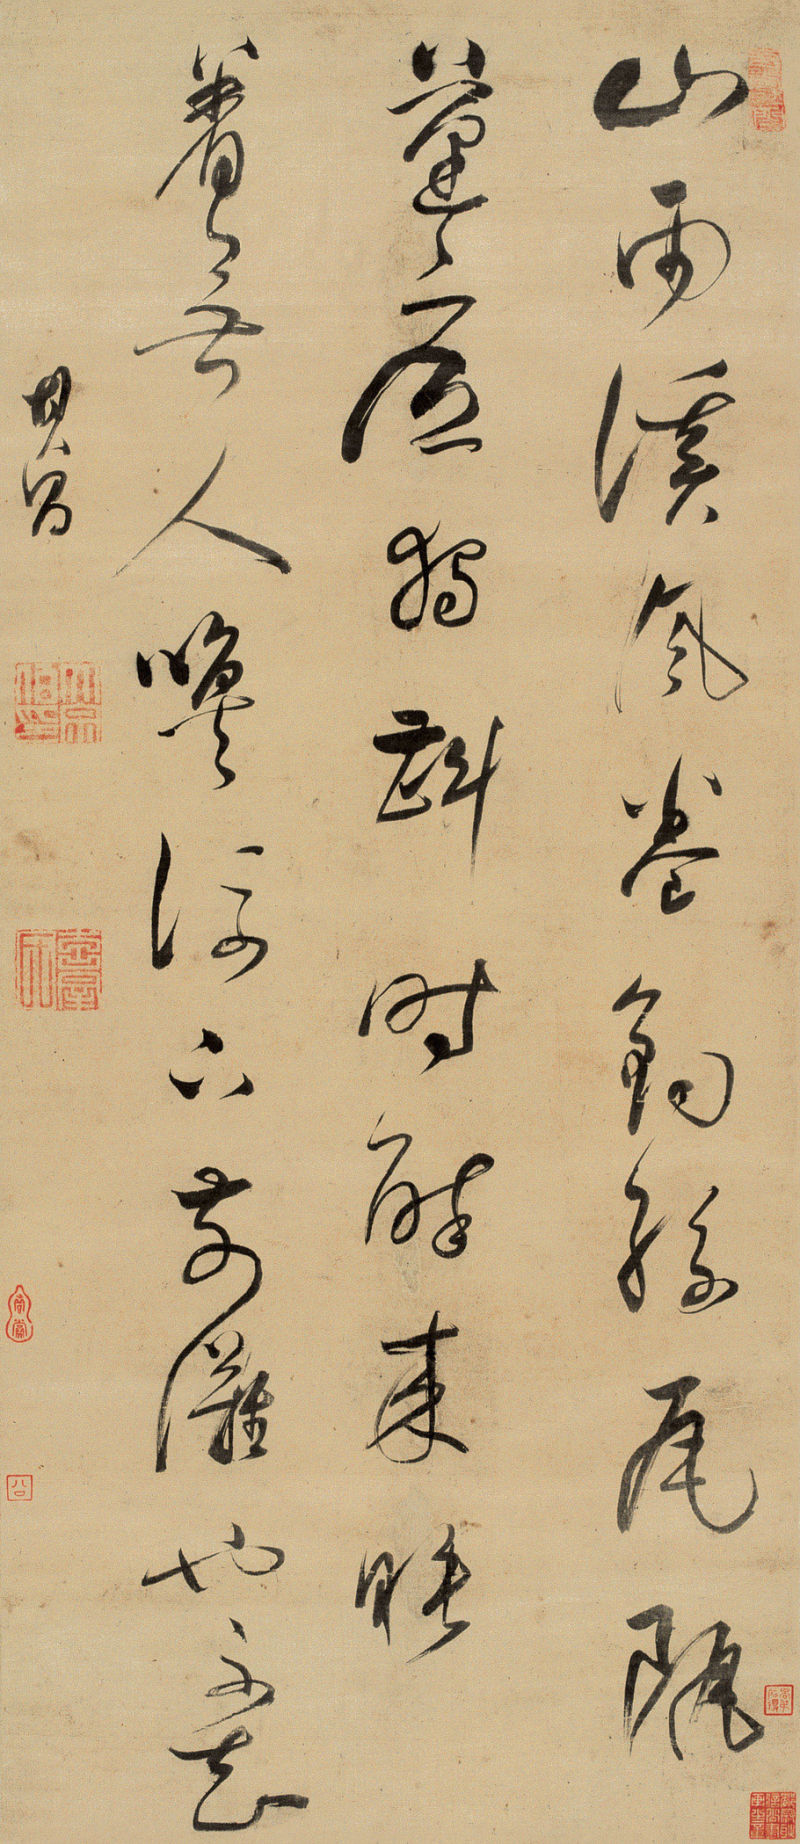 山雨溪風卷釣絲瓦甌
蓬底獨斟時醉來睡
着無人喚流下前灘也不知
其昌